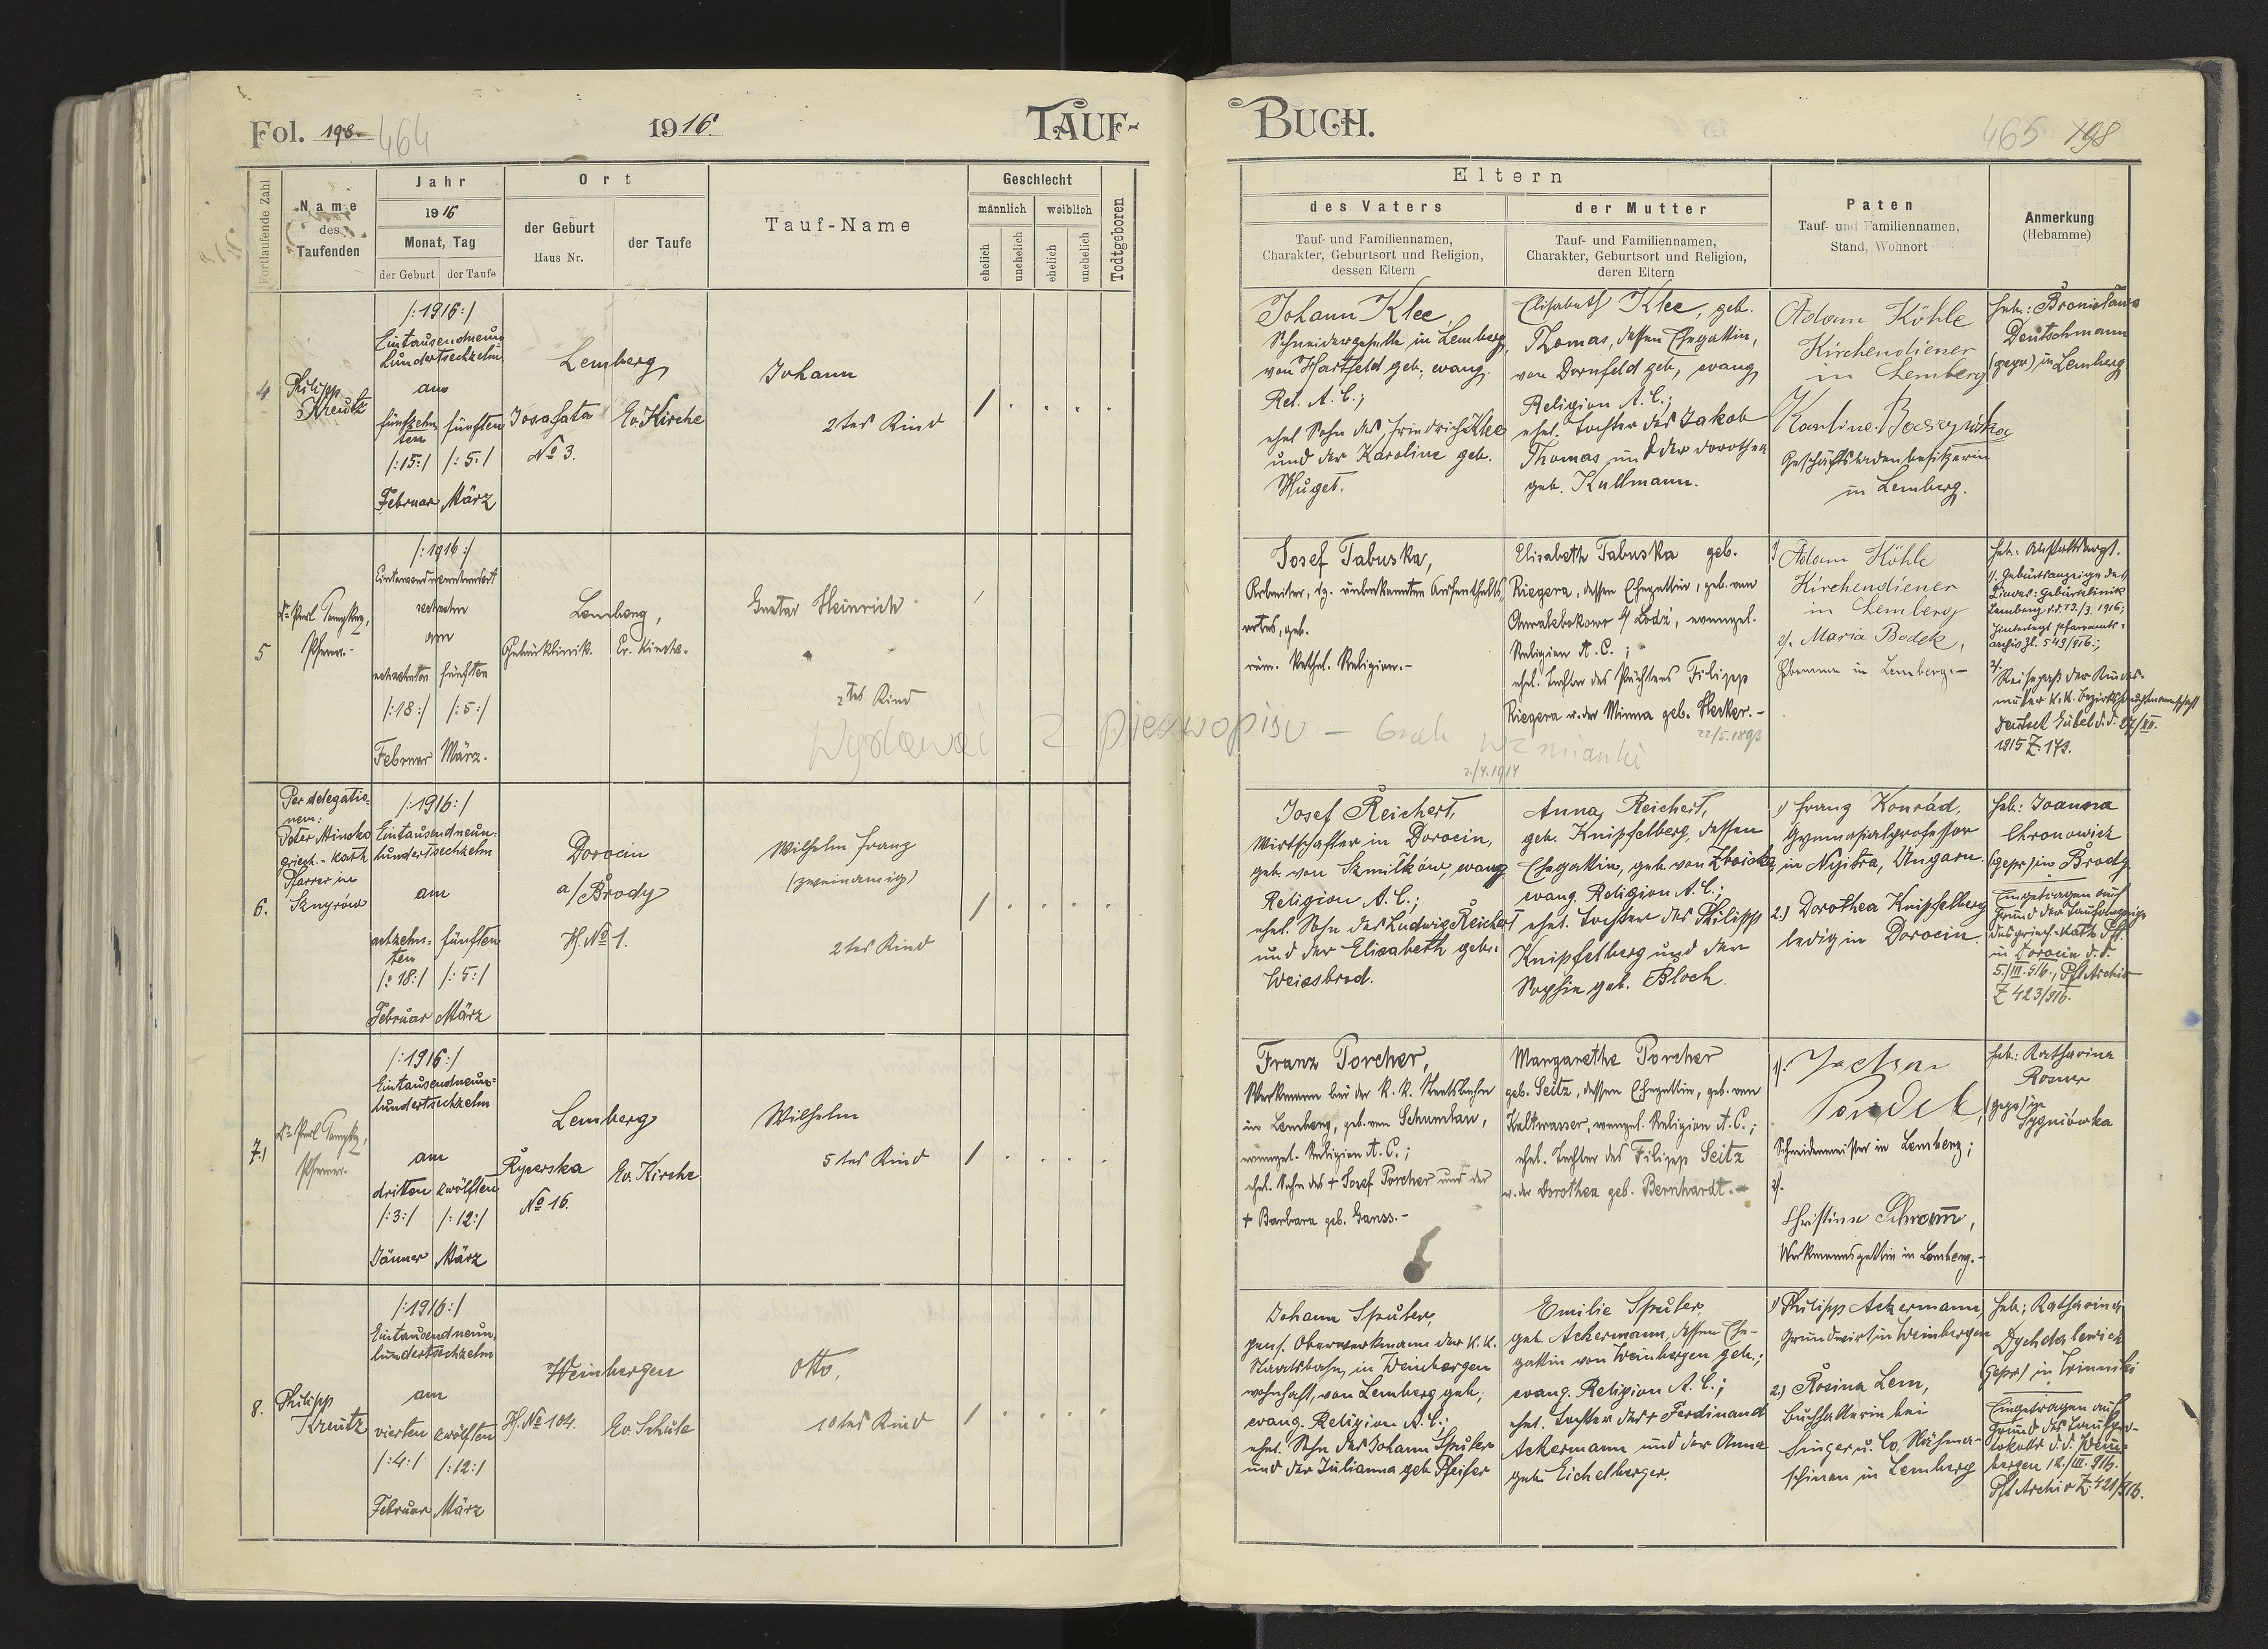 Fol. 198. 464
1916.
TAUF-
Fortlaufende Zahl
Name
des
Taufenden
Jahr
1916
Monat, Tag
der Geburt
der Taufe
Ort
der Geburt
Haus Nr.
der Taufe
Tauf-Name
Geschlecht
männlich
weiblich
ehelich
unehelich
ehelich
unehelich
Todtgeboren
4
Philipp
Kreutz
/:1916:/
Eintausendneun
hundertsechzehn
am
fünfzehn
ten
/:15:/
Februar
fünften
/:5:/
März
Lemberg
Josafata
No 3.
Ev. Kirche
Johann
2tes Kind
/
5
Pfarrer.-
/:1916:/
Eintausendneunhundert
sechzehn
am
achtzehnten
/:18:/
Februar
fünften
/:5:/
März.
Lemberg,
Geburtsklinik.
Ev. Kirche.
Gustav Heinrich
2tes Kind
/
Wydawać z pierwopisu – brak wzmianki
6.
Per delegatio-
nem:
Peter
griech.-kath
Pfarrer in
Sznyrów
/:1916:/
Eintausendneun-
hundertsechzehn
am
achzehn-
ten
/:18:/
Februar
fünften
/:5:/
März
Dorocin
a/Brody
H. No 1.
Wilhelm Franz
(zweinamig)
2tes Kind
/
7.
Pfarrer.-
/:1916:/
Eintausendneun-
hundertsechzehn
am
dritten
/:3:/
Jänner
zwölften
/:12:/
März
Lemberg
Rycerska
No 16.
Ev. Kirche
Wilhelm
5tes Kind
/
8.
Philipp
Kreutz
/:1916:/
Eintausendneun-
hundertsechzehn
am
vierten
/:4:/
Februar
zwölften
/:12:/
März
Weinbergen
H. No 104.
Ev. Schule
Otto,
10tes Kind
/
BUCH.
465 198
Eltern
des Vaters
Tauf- und Familiennamen,
Charakter, Geburtsort und Religion,
dessen Eltern
der Mutter
Tauf- und Familiennamen,
Charakter, Geburtsort und Religion,
deren Eltern
Paten
Tauf- und Familiennamen,
Stand, Wohnort
Anmerkung
(Hebamme)
Johann Klee,
Schneidergehilfe in Lemberg,
von Hartfeld geb., evang.
Rel. A.C.;
ehel Sohn des Friedrich Klee
und der Karoline geb.
Muget.
Elisabeth Klee, geb.
Thomas, dessen Ehegattin,
von Dornfeld geb, evang
Religion A.C.;
ehel. Tochter des Jakob
Thomas und der Dorothea
geb. Kullmann.
Adam Köhle
Kirchendiener
in Lemberg
Karoline
Geschäftsladenbesitzerin
in Lemberg.
Heb.: Bronislawa
Deutschmann
(gepr) in Lemberg
Josef Tabuska,
Arbeiter, dz. unbekannten Aufenthalts-
ortes, geb.
röm. kathol. Religion.-
Elisabeth Tabuska geb.
Riegera, dessen Ehegattin, geb. von
a/ Lodz, evangel.
Religion A.C.;
ehel. Tochter des Pächters Filipp
Riegera u. der Minna geb. Herker.-
22/5.1893
2./4.1914
1/ Adam Köhle
Kirchendiener
in Lemberg
2/. Maria Bodek,
Hebamme in Lemberg.-
1/. Geburtsanzeige der
Geburtsklinik
Lemberg d.d. 13./3. 1916;
hinterlegt Pfarramts-
archiv Zl. 543/916;
2/.
Reisepaß der Kindes-
mutter K.K. Bezirkshauptmannschaft
Deutsch Gabel d.d. 27/XII.
1915 Z. 173.
Josef Reichert,
Wirtschafter in Dorocin,
geb. von Szmitków, evang
Religion A.C.;
ehel. Sohn des Ludwig Reichert
und der Elisabeth geb.
Weissbrod.
Anna Reichert,
geb. Knipfelberg, dessen
Ehegattin, geb. von Zboiska,
evang. Religion A.C.;
ehel. Tochter des Philipp
Knipfelberg und der
Sophie geb. Bloch.
1/ Franz Konrád,
Gymnasialprofessor
in Nyitra, Ungarn.
2.) Dorothea Knipfelberg
ledig in Dorocin.
Heb: Joanna
Chronowich
(gepr) in Brody
Eingetragen auf
Grund der Taufanzeige
des griech.-kath. Pf.
in Dorocin d.d.
5./III. 916., Pf. Archiv
Z 423/916.
Franz Porcher,
Werkmann bei der K.K. Staatsbahn
in Lemberg, geb. von Schumlau,
evangel. Religion A.C.;
ehel. Sohn des + Josef Porcher und der
+ Barbara geb. Ganss.-
Margarethe Porcher
geb. Seitz, dessen Ehegattin, geb. von
Kaltwasser, evangel. Religion A.C.;
ehel. Tochter des Filipp Seitz
u. der Dorothea geb. Bernhardt.-
1/.
Schneidermeister in Lemberg;
2/.
Christine Schramm,
Werkmannsgattin in Lemberg.-
Heb.: Katharina
Rosner
(gepr) in
Sygniówka
Johann Spuler,
pens. Oberwerkmann der K.K.
Staatsbahn, in Weinbergen
wohnhaft, von Lemberg geb,
evang. Religion A.C.;
ehel. Sohn des Johann Spuler
und der Julianna geb Pfeifer
Emilie Spuler,
geb. Ackermann, dessen Ehe-
gattin von Weinbergen geb.;
evang. Religion A.C.;
ehel. Tochter des + Ferdinand
Ackermann und der Anna
geb. Eichelberger.
1/ Philipp Ackermann,
Grundwirt in Weinbergen
2.) Rosina Lem,
Buchhalterin bei
Singer u. Co. Nähma-
schinen in Lemberg
Heb; Katharina
Dychdalewicz
(gepr) in Winniki
Eingetragen auf
Grund des Taufpro-
tokolls d.d. Wein-
bergen 12./III. 916.
Pf. Archiv Z. 421/916.